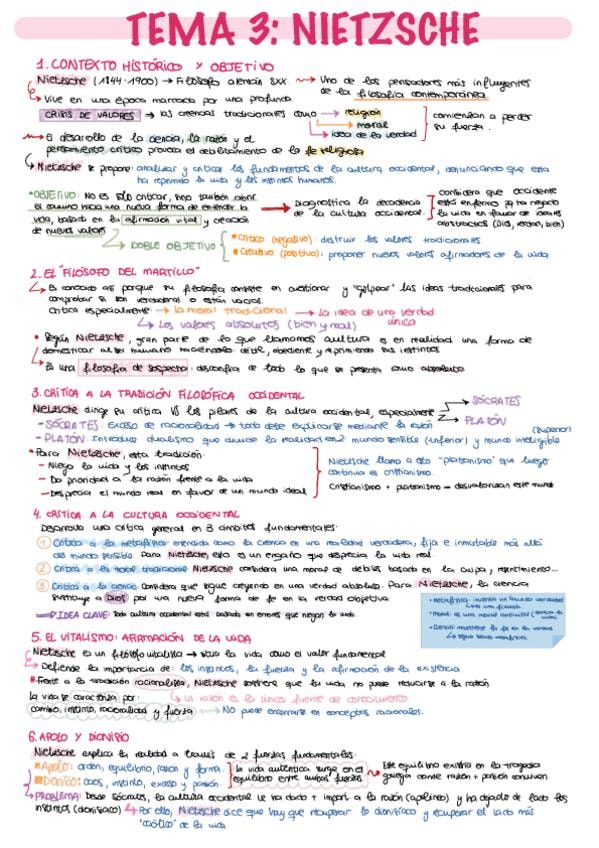 TEMA 3: NIETZSCHE
1. CONTEXTO HISTÓRICO Y OBJETIVO
Nietzsche (1844-1900) → Filósofo alemán SXX. → Uno de los pensadores más influyentes
de la filosofía contemporánea.
Vive en una época marcada por una profunda
CRISIS DE VALORES → las creencias tradicionales como → religión
→ moral
→ idea de la verdad
comienzan a perder
su fuerza.
El desarrollo de la ciencia, la razón y el
pensamiento crítico provoca el debilitamiento de la fe religiosa
Nietzsche se propone: analizar y criticar los fundamentos de la cultura occidental, denunciando que esta
ha reprimido la vida y los instintos humanos.
*OBJETIVO: No es sólo criticar, sino también abrir
el camino hacia una nueva forma de entender la
vida, basada en la afirmación vital y creación
de nuevos valores
Diagnostica la decadencia
de la cultura occidental
considera que occidente
está enfermo pq ha negado
la vida en favor de ideales
abstractos (Dios, verdad, bien)
DOBLE OBJETIVO
Crítico (negativo): destruir los valores tradicionales
Creativo (positivo): proponer nuevos valores afirmadores de la vida
2. EL "FILÓSOFO DEL MARTILLO"
Es conocido así porque su filosofía consiste en cuestionar y "golpear" las ideas tradicionales para
comprobar si son verdaderas o están vacías.
Critica especialmente: → la moral tradicional → la idea de una verdad
única
→ Los valores absolutos (bien y mal)
• Según Nietzsche, gran parte de lo que llamamos cultura es en realidad una forma de
domesticar al ser humano haciéndolo débil, obediente y reprimiendo sus instintos
Es una filosofía de sospecha: desconfía de todo lo que se presenta como absoluto
3. CRÍTICA A LA TRADICIÓN FILOSÓFICA OCCIDENTAL
Nietzsche dirige su crítica VS los pilares de la cultura occidental, especialmente → SÓCRATES
→ PLATÓN
- SÓCRATES: exceso de racionalidad → todo debe explicarse mediante la razón
- PLATÓN: Introduce dualismo que divide la realidad en 2 mundo sensible (inferior) y mundo inteligible
(superior)
• Para Nietzsche, esta tradición:
- Niega la vida y los instintos
- Da prioridad a la razón frente a la vida
- Desprecia el mundo real en favor de un mundo ideal
Nietzsche llama a esto "platonismo" que luego
continúa el cristianismo.
Cristianismo + platonismo = desvalorizan este mundo
4. CRÍTICA A LA CULTURA OCCIDENTAL
Desarrolla una crítica general en 3 ámbitos fundamentales:
1 Crítica a la metafísica: entendida como la ciencia en una realidad verdadera, fija e inmutable más allá
del mundo sensible. Para Nietzsche, esto es un engaño que desprecia la vida real.
2 Crítica a la moral tradicional: Nietzsche considera una moral de débiles basada en la culpa, resentimiento...
3 Crítica a la ciencia: Considera que sigue creyendo en una verdad absoluta. Para Nietzsche, la ciencia
sustituye a Dios por una nueva forma de fe en la verdad objetiva.
IDEA CLAVE: Toda cultura occidental está basada en errores que niegan la vida.
• Metafísica: inventa un mundo verdadero
• Moral: es una moral antivital
• Ciencia: mantiene la fe en la verdad
5. EL VITALISMO: AFIRMACIÓN DE LA VIDA
Nietzsche es un filósofo vitalista → sitúa la vida como el valor fundamental
Defiende la importancia de: los instintos, la fuerza y la afirmación de la existencia
Frente a la tradición racionalista, Nietzsche sostiene que la vida no puede reducirse a la razón
→ La razón es la única fuente de conocimiento
la vida se caracteriza por:
cambio, instinto, irracionalidad y fuerza → No puede encerrarse en conceptos racionales.
6. APOLO Y DIONISIO
Nietzsche explica la realidad a través de 2 fuerzas fundamentales:
Apolo: orden, equilibrio, razón y forma.
Dionisio: caos, instinto, exceso y pasión.
la vida auténtica surge en el
equilibrio entre ambas fuerzas
Este equilibrio existía en la tragedia
griega donde razón + pasión convivían
PROBLEMA: Desde Sócrates, la cultura occidental le ha dado + import. a la razón (apolíneo) y ha dejado de lado los
instintos (dionisíaco) → Por ello, Nietzsche dice que hay que recuperar lo dionisíaco y recuperar el lado más
"caótico" de la vida.